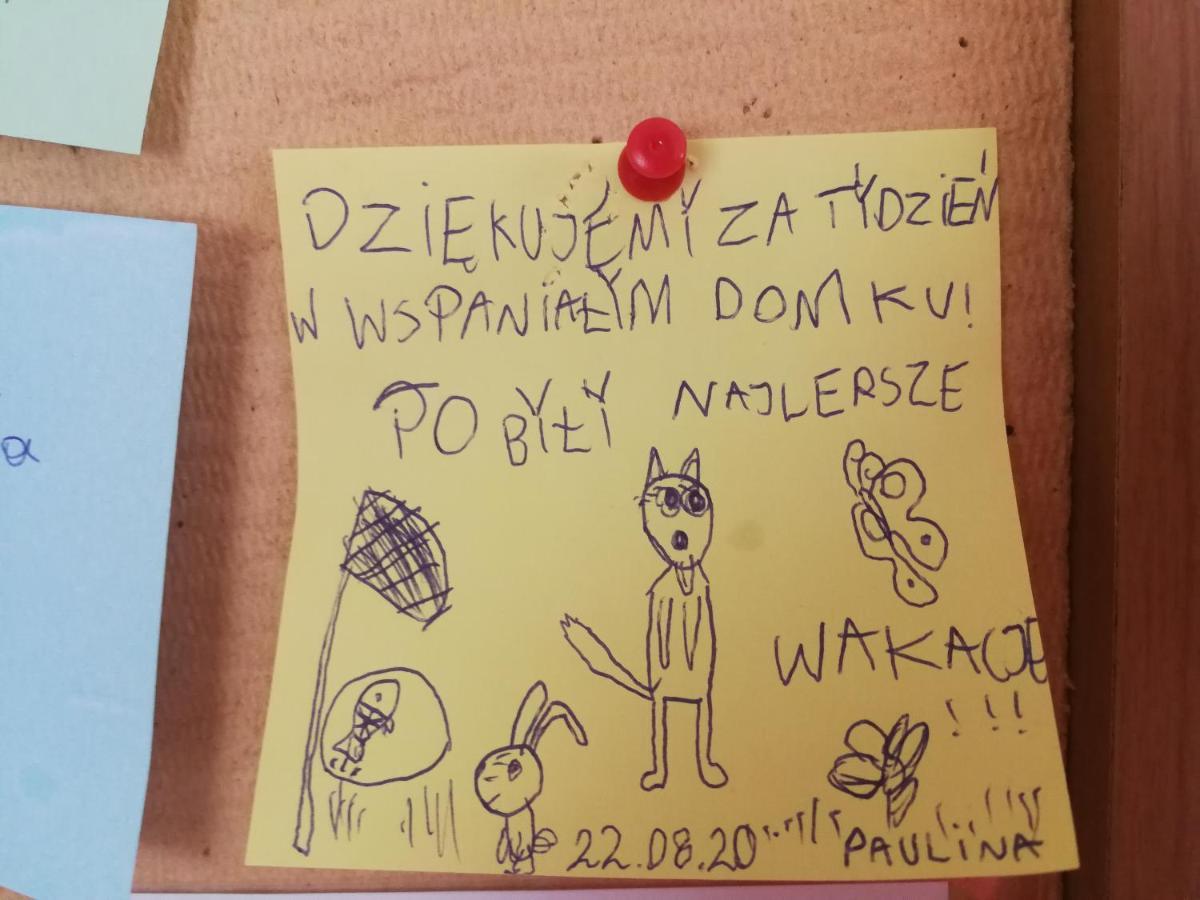 DZIĘKUJEMY ZA TYDZIEŃ
W WSPANIAŁYM DOMKU!
TO BYŁY NAJLEPSZE
WAKACJE
!!!
22.08.20 PAULINA
a